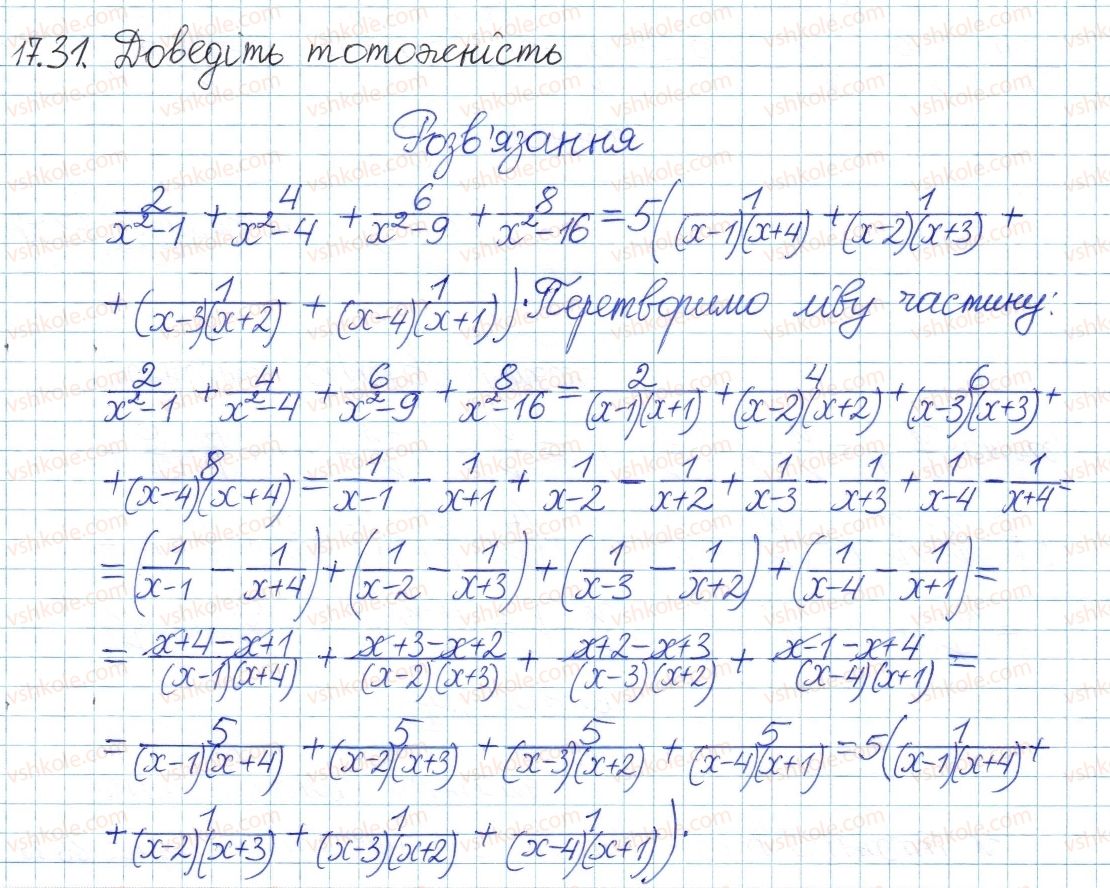 17.31. Доведіть тотожність
Розв'язання
2/(x²-1) + 4/(x²-4) + 6/(x²-9) + 8/(x²-16) = 5(1/((x-1)(x+4)) + 1/((x-2)(x+3)) +
+ 1/((x-3)(x+2)) + 1/((x-4)(x+1))). Перетворимо ліву частину:
2/(x²-1) + 4/(x²-4) + 6/(x²-9) + 8/(x²-16) = 2/((x-1)(x+1)) + 4/((x-2)(x+2)) + 6/((x-3)(x+3)) +
+ 8/((x-4)(x+4)) = 1/(x-1) - 1/(x+1) + 1/(x-2) - 1/(x+2) + 1/(x-3) - 1/(x+3) + 1/(x-4) - 1/(x+4) =
= (1/(x-1) - 1/(x+4)) + (1/(x-2) - 1/(x+3)) + (1/(x-3) - 1/(x+2)) + (1/(x-4) - 1/(x+1)) =
= (x+4-x+1)/((x-1)(x+4)) + (x+3-x+2)/((x-2)(x+3)) + (x+2-x+3)/((x-3)(x+2)) + (x-1-x+4)/((x-4)(x+1)) =
= 5/((x-1)(x+4)) + 5/((x-2)(x+3)) + 5/((x-3)(x+2)) + 5/((x-4)(x+1)) = 5(1/((x-1)(x+4)) +
+ 1/((x-2)(x+3)) + 1/((x-3)(x+2)) + 1/((x-4)(x+1))).
vshkole.com